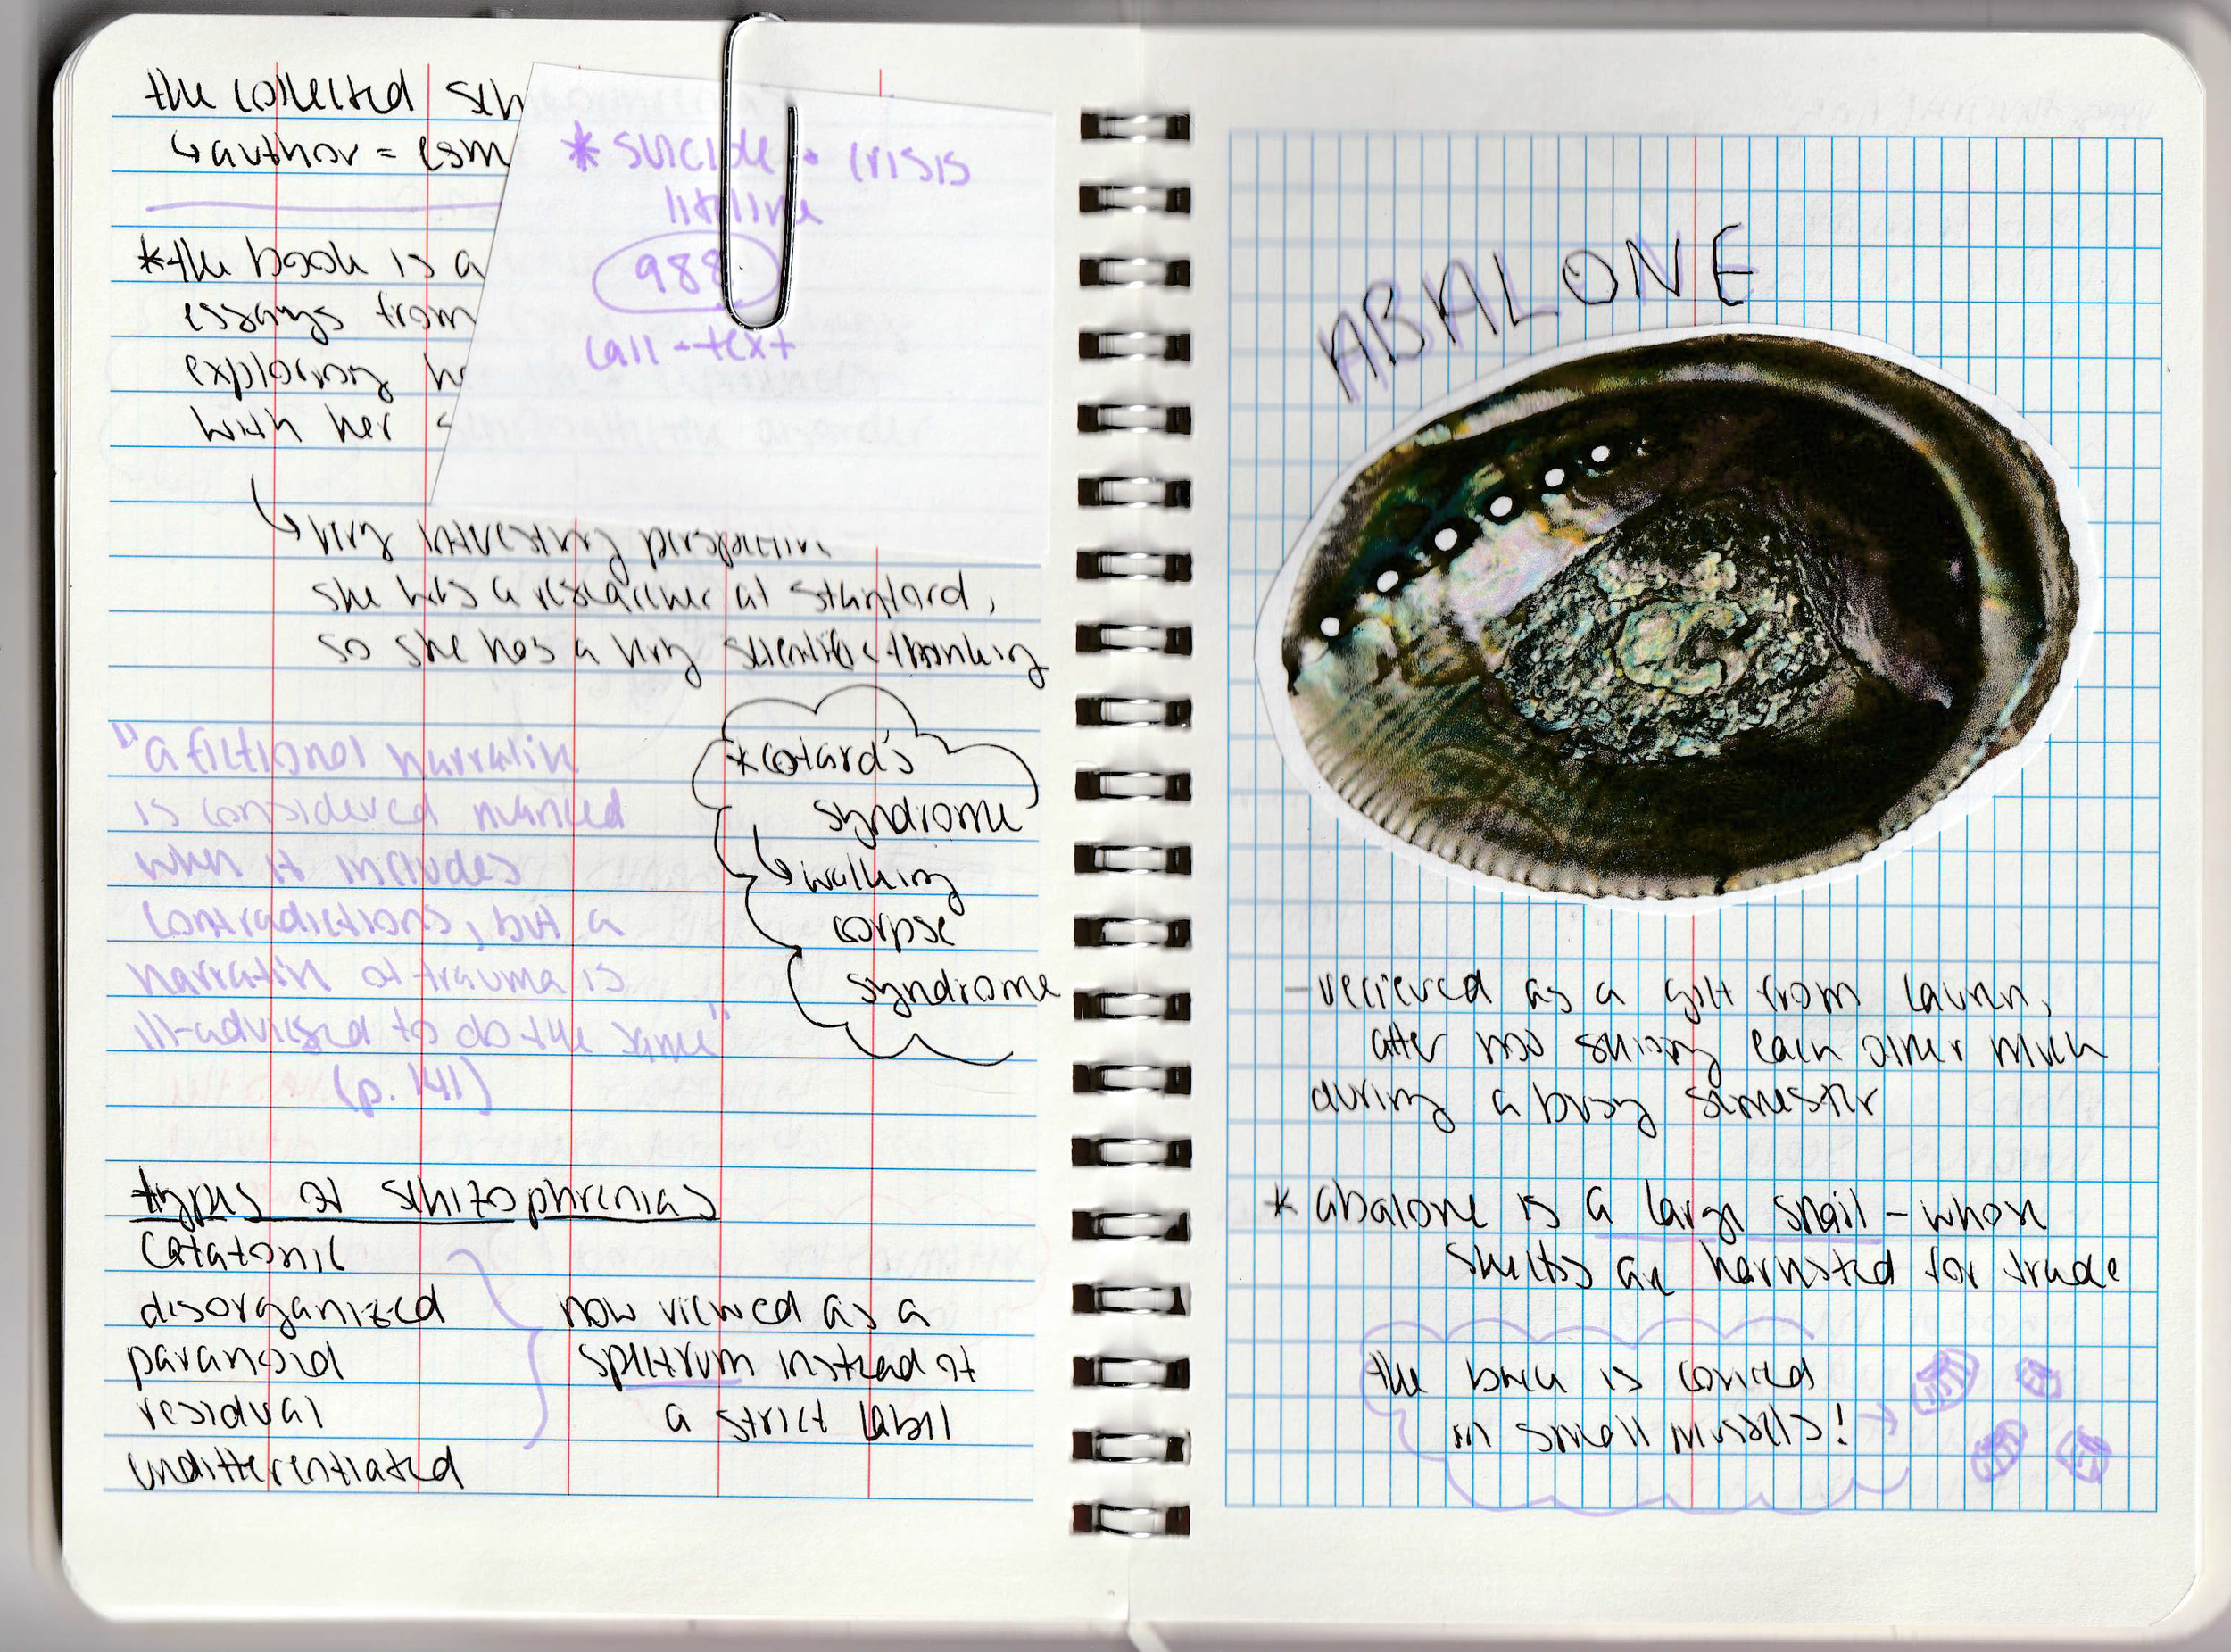 the collected sch
↳ author = esm
* the book is a
essays from
exploring he
with her
* suicide + crisis
lifeline
988
call + text
↳ very interesting perspective
she was a researcher at stanford,
so she has a very scientific thinking
"a fictional narrative
is considered nuanced
when it includes
contradictions, but a
narrative of trauma is
ill-advised to do the same"
(p. 141)
* cotard's
syndrome
↳ walking
corpse
syndrome
types of schizophrenias
catatonic
disorganized
paranoid
residual
undifferentiated
now viewed as a
spectrum instead of
a strict label
ABALONE
- recieved as a gift from lauren,
after not seeing each other much
during a busy semester
* abalone is a large snail - whose
shells are harvested for trade
the back is covered
in small mussels!